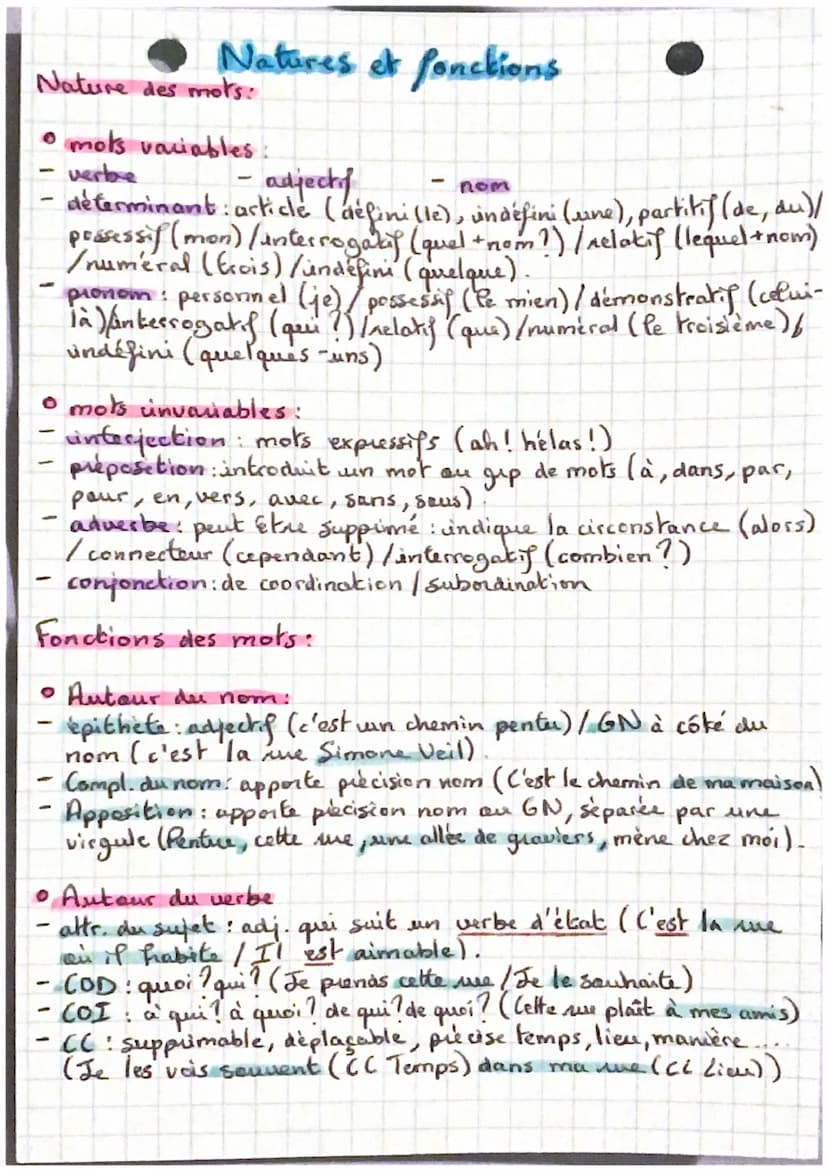 Natures et fonctions
Nature des mots:
° mots variables :
- verbe - adjectif - nom
- déterminant : article (défini (le), indéfini (une), partitif (de, du)/
possessif (mon) /interrogatif (quel + nom ?) /relatif (lequel + nom)
/numéral (trois) /indéfini (quelque).
- pronom : personnel (je) / possessif (le mien) / démonstratif (celui-
là)/interrogatif (qui ?)/relatif (que) /numéral (le troisième)/
indéfini (quelques-uns)
° mots invariables :
- interjection : mots expressifs (ah! hélas!)
- préposition : introduit un mot ou grp de mots (à, dans, par,
pour, en, vers, avec, sans, sous).
- adverbe : peut être supprimé : indique la circonstance (alors)
/ connecteur (cependant) /interrogatif (combien ?)
- conjonction : de coordination / subordination
Fonctions des mots :
° Autour du nom :
- épithète : adjectif (c'est un chemin pentu) / GN à côté du
nom (c'est la rue Simone Veil).
- Compl. du nom : apporte précision nom (C'est le chemin de ma maison)
- Apposition : apporte précision nom ou GN, séparée par une
virgule (Pentue, cette rue, une allée de graviers, mène chez moi).
° Autour du verbe
- attr. du sujet : adj. qui suit un verbe d'état (C'est la rue
où il habite / Il est aimable).
- COD : quoi ? qui ? (Je prends cette rue / Je le souhaite)
- COI : à qui ? à quoi ? de qui ? de quoi ? (Cette rue plaît à mes amis)
- CC : supprimable, déplaçable, précise temps, lieu, manière ....
(Je les vois souvent (CC Temps) dans ma rue (CC Lieu))